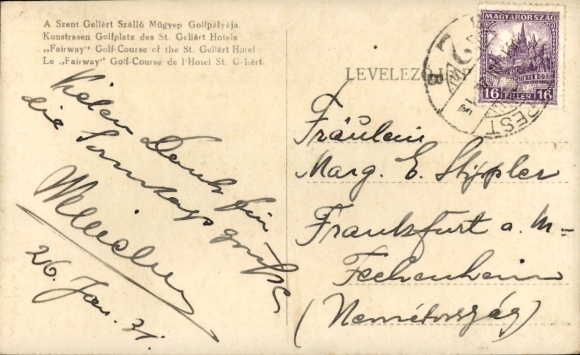 A Szent Gellért Szálló Műgyep Golfpályája.
Kunstrasen Golfplatz des St. Gellért Hotels
„Fairway“ Golf-Course of the St. Gellért Hotel
Le „Fairway“ Golf-Course de l'Hotel St. Gellért.
LEVELEZŐ
MAGYARORSZÁG
16 FILLÉR 16
PEST
Vielen Dank für
die Sonntagsgrüße
26. Jan. 31.
Fräulein
Marg. E. Stippler
Frankfurt a. M=
Fechenheim
(Németország)